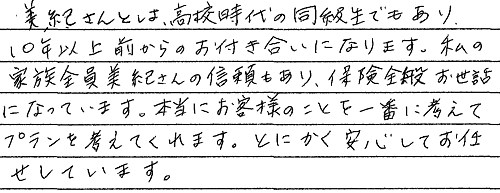 美紀さんとは、高校時代の同級生でもあり、
10年以上前からのお付き合いになります。私の
家族全員美紀さんの信頼もあり、保険全般お世話
になっています。本当にお客様のことを一番に考えて
プランを考えてくれます。とにかく安心してお任
せしています。